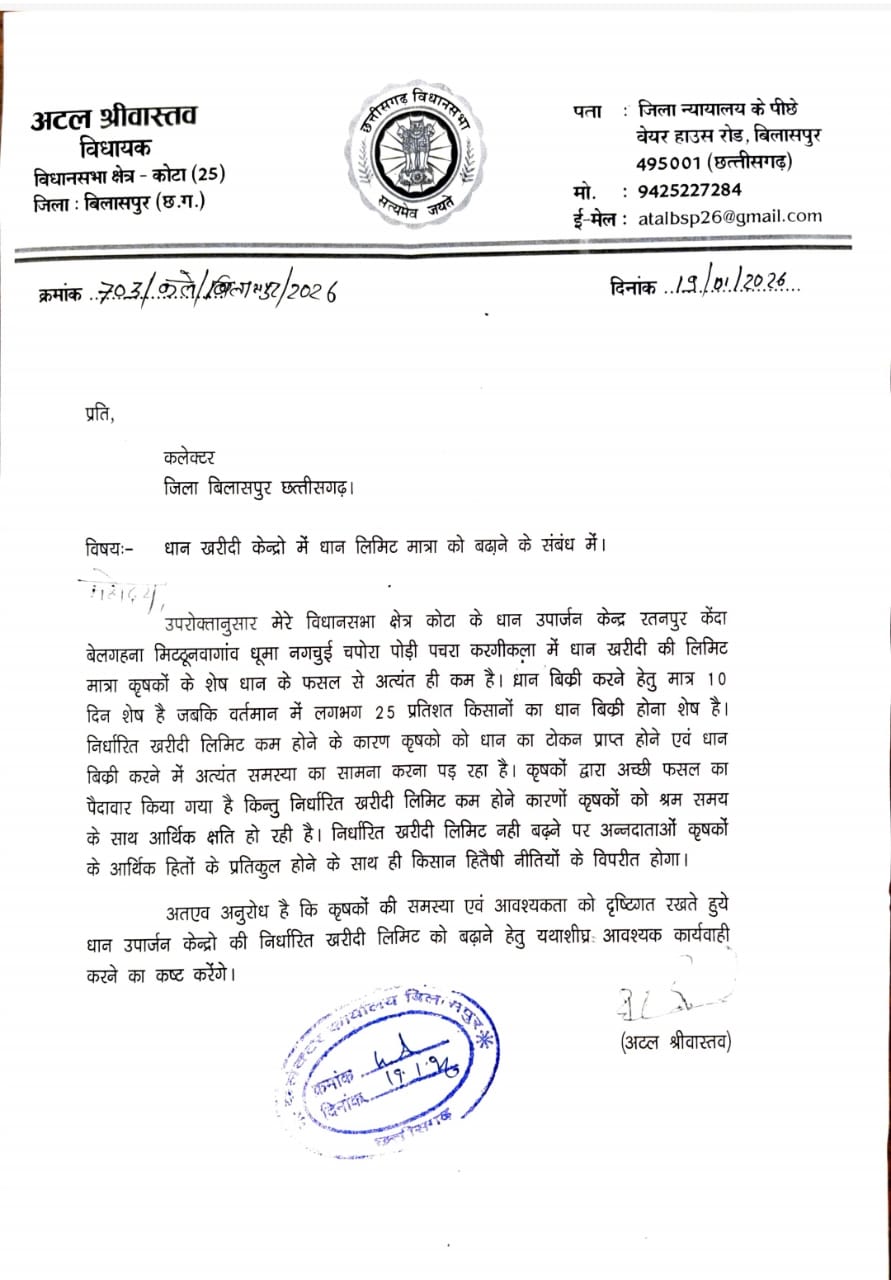 अटल श्रीवास्तव
विधायक
विधानसभा क्षेत्र - कोटा (25)
जिला : बिलासपुर (छ.ग.)
छत्तीसगढ़ विधानसभा
सत्यमेव जयते
पता : जिला न्यायालय के पीछे
वेयर हाउस रोड, बिलासपुर
495001 (छत्तीसगढ़)
मो. : 9425227284
ई-मेल : atalbsp26@gmail.com
क्रमांक 703/कले/बिलासपुर/2026
दिनांक 19/01/2026
प्रति,
कलेक्टर
जिला बिलासपुर छत्तीसगढ़।
विषयः- धान खरीदी केन्द्रो में धान लिमिट मात्रा को बढ़ाने के संबंध में।
महोदय,
उपरोक्तानुसार मेरे विधानसभा क्षेत्र कोटा के धान उपार्जन केन्द्र रतनपुर केंदा
बेलगहना मिटठूनवागांव धूमा नगचुई चपोरा पोड़ी पचरा करगीकला में धान खरीदी की लिमिट
मात्रा कृषकों के शेष धान के फसल से अत्यंत ही कम है। धान बिक्री करने हेतु मात्र 10
दिन शेष है जबकि वर्तमान में लगभग 25 प्रतिशत किसानों का धान बिक्री होना शेष है।
निर्धारित खरीदी लिमिट कम होने के कारण कृषको को धान का टोकन प्राप्त होने एवं धान
बिक्री करने में अत्यंत समस्या का सामना करना पड़ रहा है। कृषकों द्वारा अच्छी फसल का
पैदावार किया गया है किन्तु निर्धारित खरीदी लिमिट कम होने कारणों कृषकों को श्रम समय
के साथ आर्थिक क्षति हो रही है। निर्धारित खरीदी लिमिट नही बढ़ने पर अन्नदाताओं कृषकों
के आर्थिक हितों के प्रतिकुल होने के साथ ही किसान हितैषी नीतियों के विपरीत होगा।
अतएव अनुरोध है कि कृषकों की समस्या एवं आवश्यकता को दृष्टिगत रखते हुये
धान उपार्जन केन्द्रो की निर्धारित खरीदी लिमिट को बढ़ाने हेतु यथाशीघ्र आवश्यक कार्यवाही
करने का कष्ट करेंगे।
(अटल श्रीवास्तव)
कलेक्टर कार्यालय बिलासपुर
क्रमांक
दिनांक 19.1.26
छत्तीसगढ़